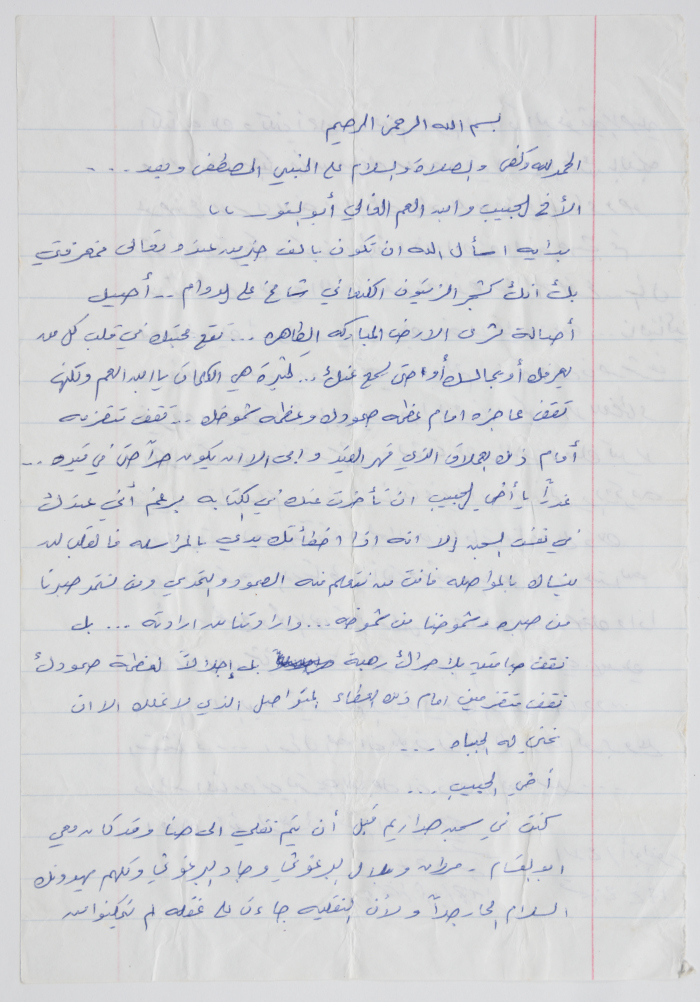 بسم الله الرحمن الرحيم
الحمد لله وكفى والصلاة والسلام على النبي المصطفى وبعد ...
الأخ الحبيب وابن العم الغالي أبو النور ،،،،
بدايه اسأل الله ان تكون بألف خير من عنده وتعالى فمعرفتي
بك انك كشجر الزيتون الكنعاني شامخ على الدوام .. أصيل
أصالة ثرى الارض المباركه الطاهره ... تقع محبتك في قلب كل من
يعرفك أو يجالسك أو حتى يسمع عنك ... كثيرة هي الكلمات يا ابن العم ولكنها
تقف عاجزه امام عظمه صمودك وعظمه شموخك .. تقف متقزمه
أمام ذلك العملاق الذي قهر القيد وابى الا ان يكون حراً حتى في قيده ..
عذراً يا أخي الحبيب ان تأخرت عنك في الكتابه برغم أنني عندك
في نفس السجن إلا انه اذا اخطأتك يدي بالمراسله فالقلب لن
ينساك بالمواصله فانت من نتعلم منه الصمود والتحدي ومن نستمد صبرنا
من صبره وشموخنا من شموخه ... وارادتنا من ارادته ... بل
نقف صامتين بلا حراك رهبة بل إجلالاً لعظمة صمودك
نقف متقزمين امام ذلك العطاء المتواصل الذي لا نملك الا ان
نحني له الجباه ...
أخي الحبيب ...
كنت في سجن هداريم قبل أن يتم نقلي الى هنا وقد كان معي
ابو القسام - مروان وبلال البرغوثي وجاد البرغوثي وكلهم يهدونك
السلام الحار جداً ولأن النقليه جاءت على غفله لم يتمكنوا من